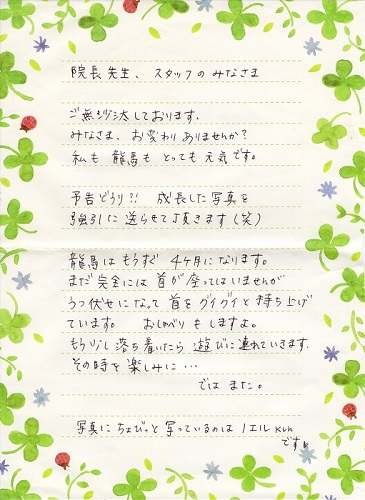 院長先生、スタッフのみなさま
ご無沙汰しております。
みなさま、お変わりありませんか?
私も 龍馬も とっても元気です。
予告どうり?! 成長した写真を
強引に送らせて頂きます(笑)
龍馬はもうすぐ 4ヶ月になります。
まだ完全には首が座ってはいませんが
うつ伏せになって首をグイグイと持ち上げ
ています。 おしゃべりもしますよ。
もう少し落ち着いたら 遊びに連れていきます。
その時を楽しみに…
ではまた。
写真にちょびっと写っているのは ノエルkun
です